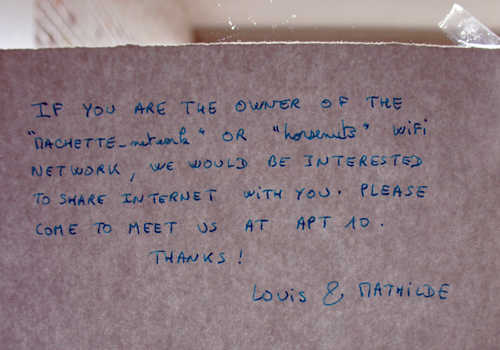 IF YOU ARE THE OWNER OF THE
"MACHETTE_network" OR "horsenuts" WiFi
NETWORK, WE WOULD BE INTERESTED
TO SHARE INTERNET WITH YOU. PLEASE
COME TO MEET US AT APT 10.
THANKS!
LOUIS & MATHILDE